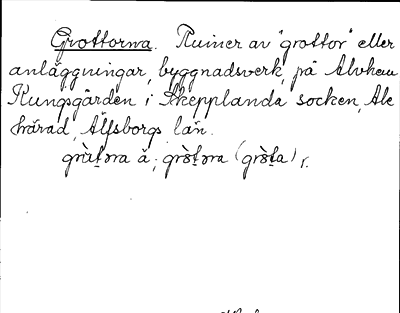 Grottorna. Ruiner av "grottor" eller
anläggningar, byggnadsverk, på Alvhem
Kungsgården i Skepplanda socken, Ale
härad, Älfsborgs län.
grὰt̠ɘra ä; grὸt̠ɘra (grὸt̠a) r.